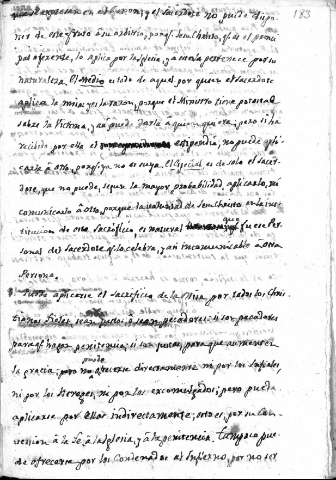 183
que se expresan en el Canon; y el sacerdote no puede dispo-
ner de este fruto à su arbitrio, porq. Jesu Christo, q. es el prin-
pal oferente, lo aplica por la Iglesia, y à ella pertenece por su
naturaleza. El Medio es todo de aquel por quien el Sacerdote
aplica la misa; y es la razon, porque el Ministro tiene potestad
sobre la Victima, y así puede darla à quien quiera; pero si ha
recibido por ella el estipendio, no puede apli-
carla à otro, porq. ya no es suya. El Especial es de solo el sacer-
dote, que no puede, segun la mayor probabilidad, aplicarlo, ni
comunicarlo à otro, porque la voluntad de Jesu Christo en la ins-
titucion de este Sacrificio es natural que fuese Per-
sonal del Sacerdote q. lo celebra, y así incomunicable à otra
Persona.
Puede aplicarse el Sacrificio de la Misa por todos los Chris-
tianos Fieles, sean justos, ò sean pecadores: si son pecadores
para q. hagan penitencia; si son justos, para que aumenten
la gracia; pero no puede ofrecerse directamente ni por los Infieles,
ni por los Hereges, ni por los excomulgados; pero puede
aplicarse por ellos indirectamente; esto es, por su con-
version à la Fe, à la Iglesia, y à la penitencia. Tampoco pue-
de ofrecerse por los Condenados al Infierno, por no ser